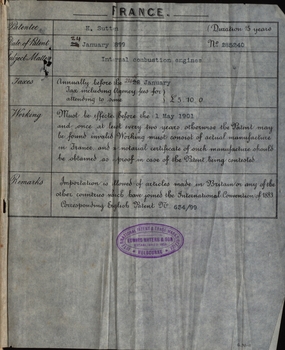 FRANCE.
Patentee
E. Sutton
(Duration 15 years
Date of Patent
24 January
No
Subject Matter
Internal combustion engines
Taxes
Annually before the January
Tax including Agency fee for
attending to same
£ 3. 10. 0
Working
Must be effected before the 1 May 1901
and once at least every two years otherwise the Patent may
be found invalid Working must consist of actual manufacture
in France, and a notarial certificate of such manufacture should
be obtained as proof in case of the Patent being contested.
Remarks
Importation is allowed of articles made in Britain or any of the
other countries which have joined the International Convention of 1883
Corresponding English Patent No
EDWARD WATERS & SON
MELBOURNE